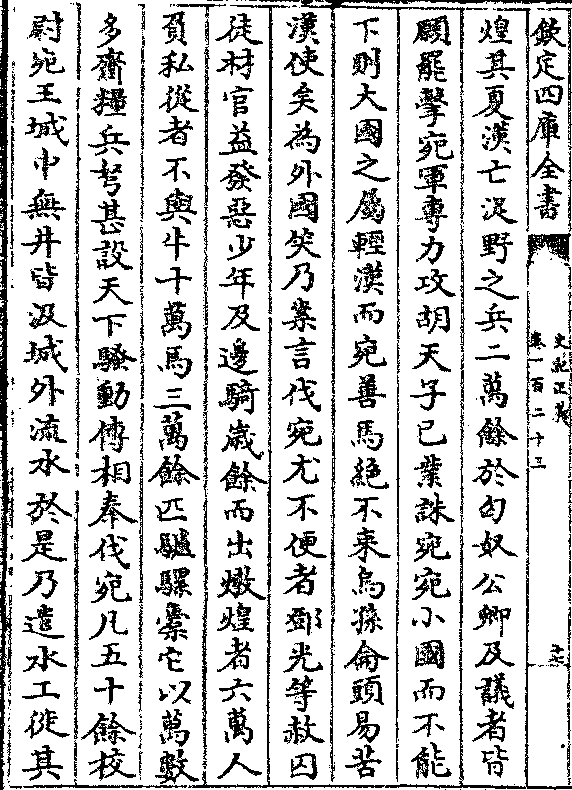 欽定四庫全書
史記正義
卷一百二十三
煌其夏漢亡浞野之兵二萬餘於匈奴公卿及議者皆
願罷擊宛軍專力攻胡天子已業誅宛宛小國而不能
下則大國之屬輕漢而宛善馬絶不來烏孫侖頭易苦
漢使矣為外國笑乃案言伐宛尤不便者鄧光等赦囚
徒材官益發惡少年及邊騎嵗餘而出燉煌者六萬人
負私從者不與牛十萬馬三萬餘匹驢騾橐它以萬數
多齎糧兵弩甚設天下騷動傳相奉伐宛凡五十餘校
尉宛王城中無井皆汲城外流水於是乃遣水工徙其